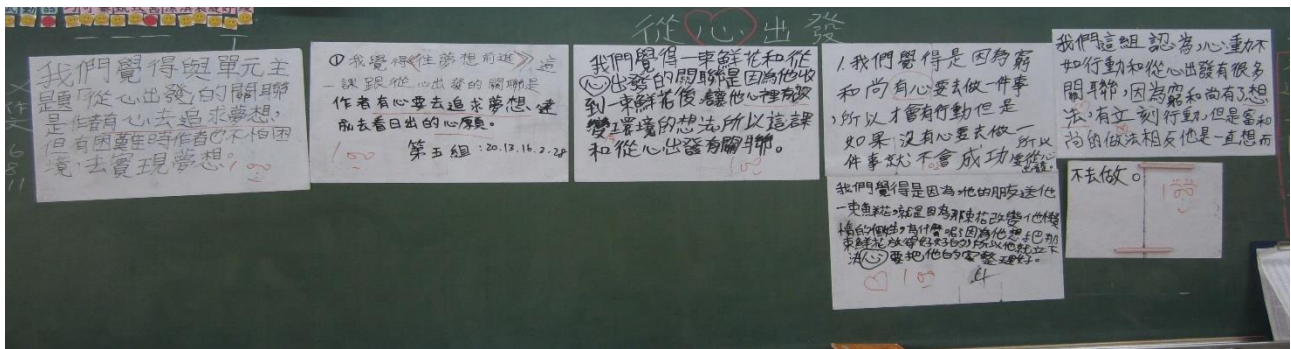 從心出發
我們覺得與單元主
題「從心出發」的關聯
是作者有心去追求夢想,
但有困難時作者也不怕困
境,去實現夢想。
100
①我覺得《往夢想前進》這
一課跟從心出發的關聯是
作者有心要去追求夢想、達
成去看日出的心願。
第五組:20.13.16.2.28
100
我們覺得一束鮮花和從
心出發的關聯是因為他收
到一束鮮花後,讓他心裡有改
變環境的想法,所以這課
和從心出發有關聯。
100
1.我們覺得是因為窮
和尚有心要去做一件事
,所以才會有行動但是
如果沒有心要去做一
件事就不會成功
100
我們覺得是因為,他的朋友送他
一束鮮花,就是因為那束花改變他
的個性,為什麼呢?因為他想把那
束鮮花放得好好的,所以他就立下
決心要把他的家整理好。
100
我們這組認為,心動不
如行動和從心出發有很多
關聯,因為窮和尚有了想
法,有立刻行動,但是富和
尚的做法相反他是一直想而
不去做。
100